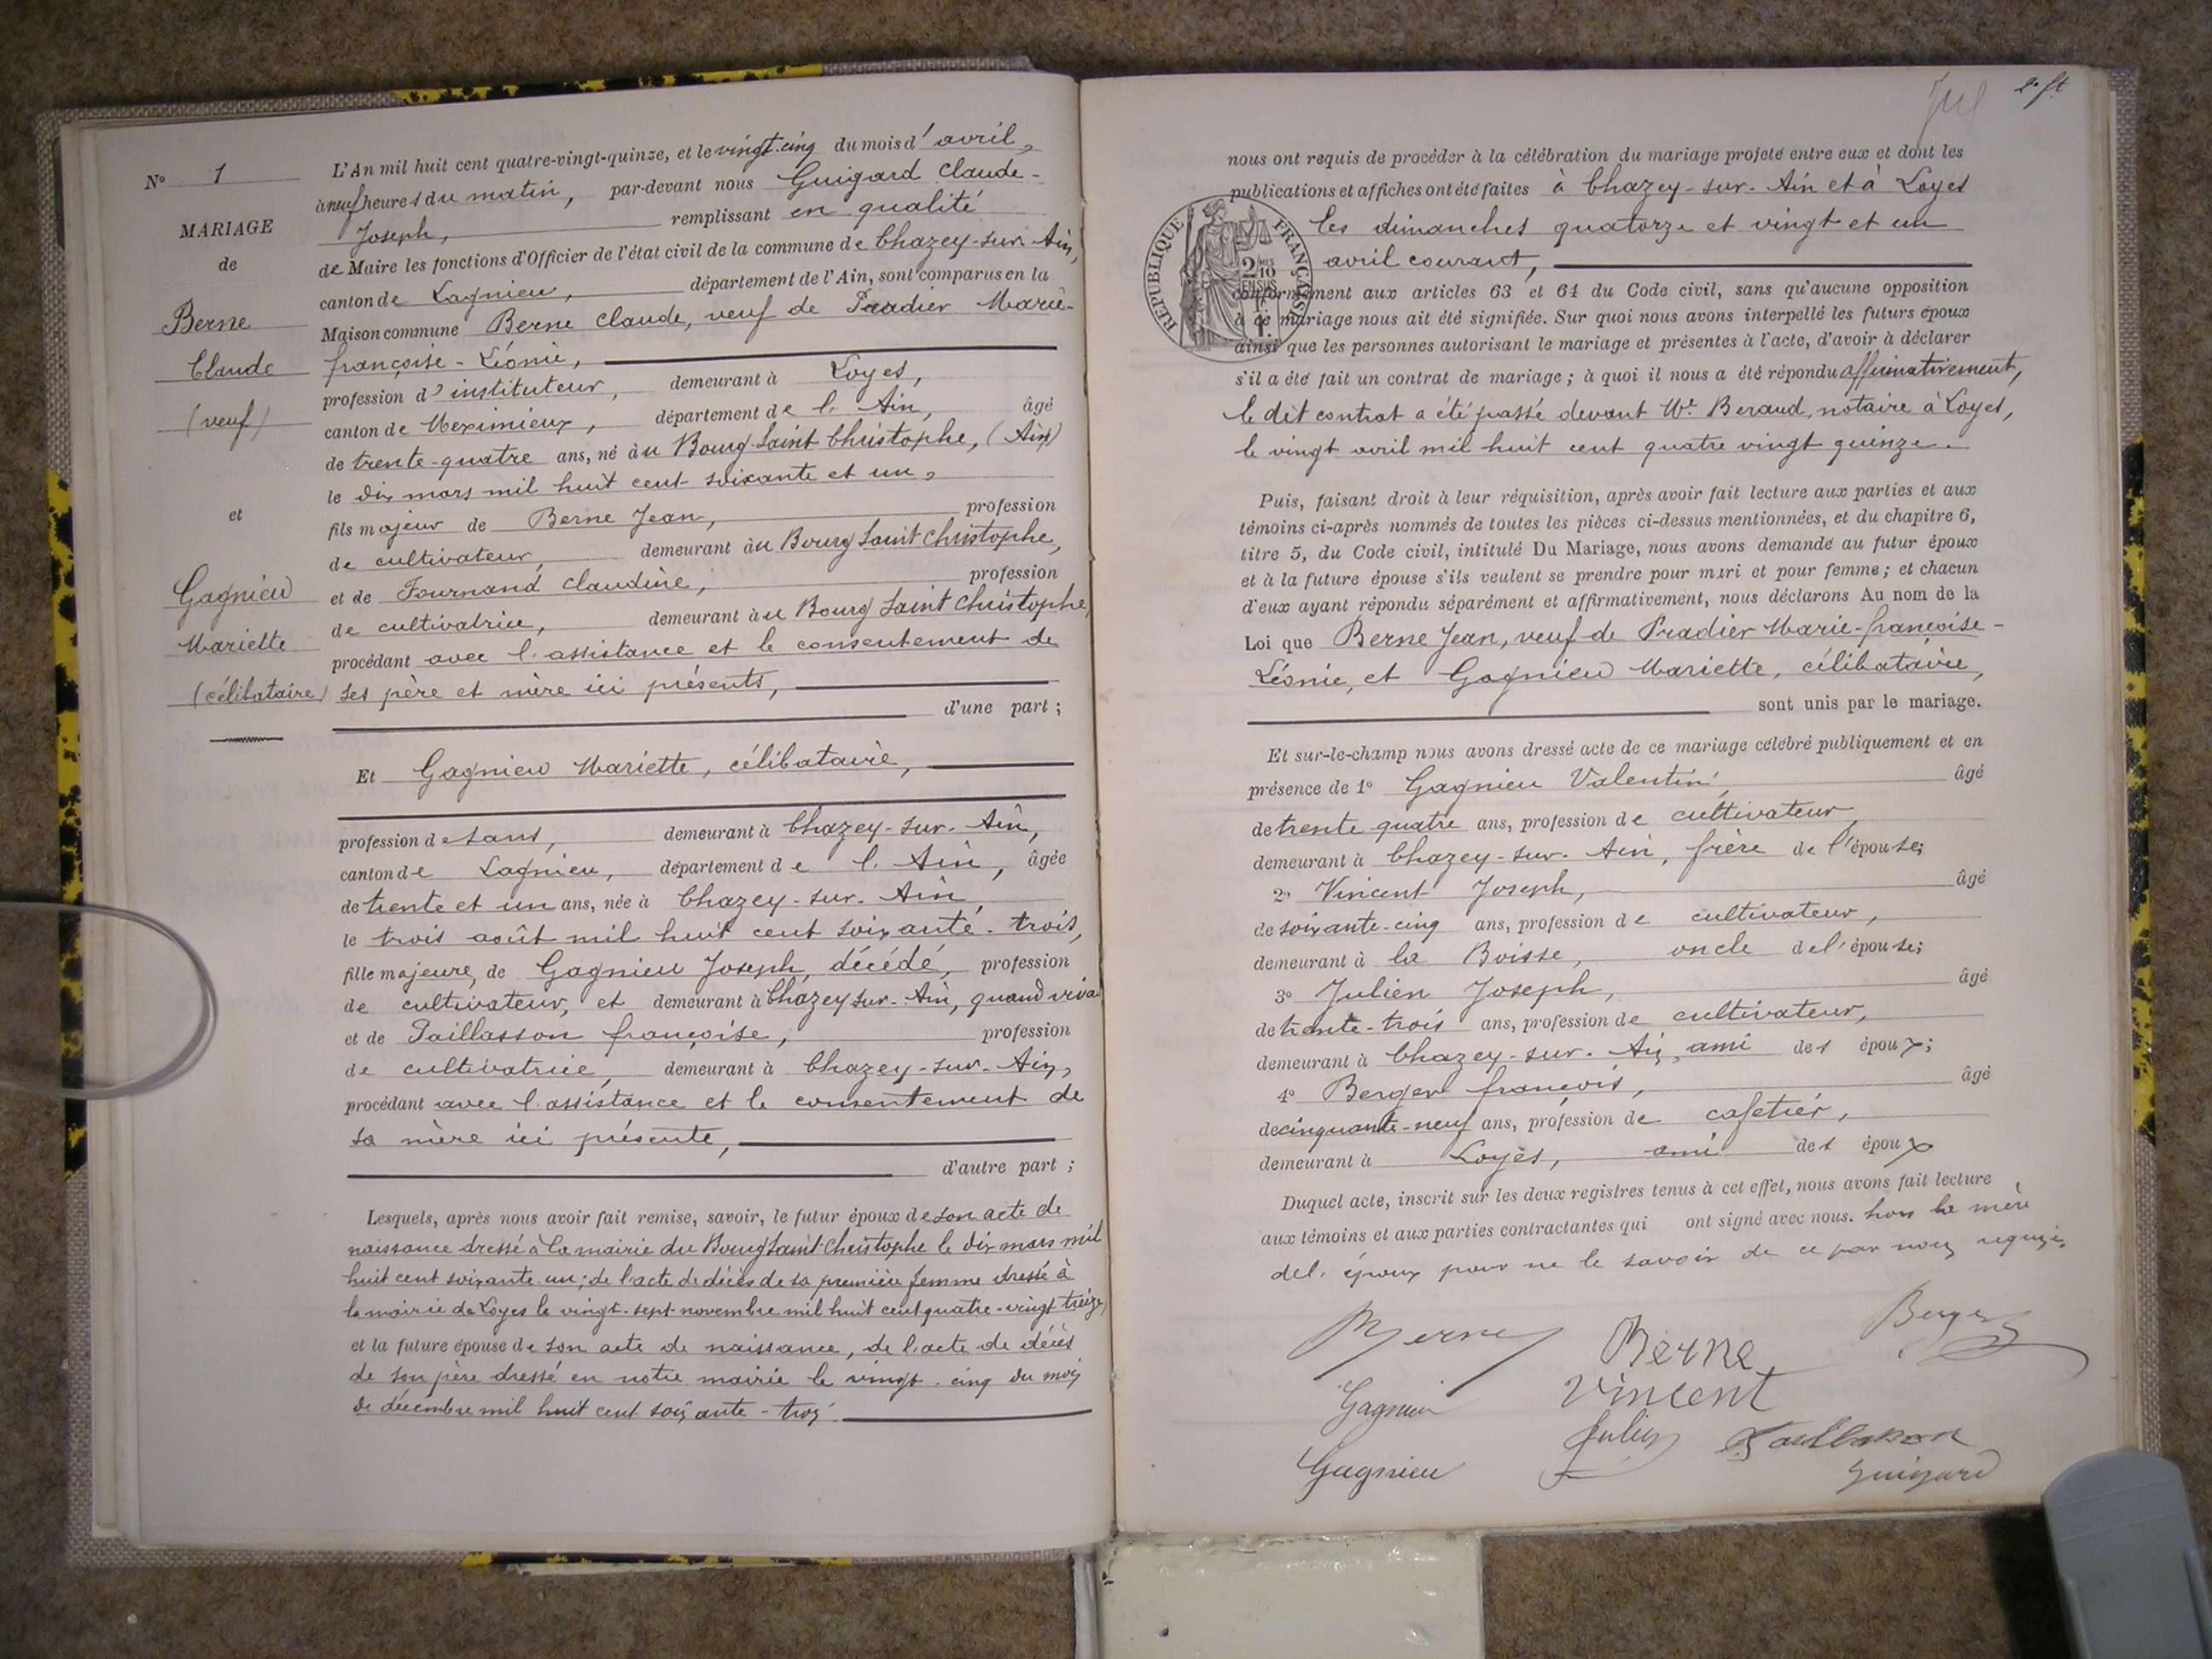 N° 1
MARIAGE
de
Berne
Claude
(veuf)
et
Gagnieu
Mariette
(célibataire)
L'An mil huit cent quatre-vingt-quinze, et le vingt-cinq du mois d'avril,
à neuf heures du matin, par-devant nous Guigard Claude-
Joseph, remplissant en qualité
de Maire les fonctions d'Officier de l'état civil de la commune de Chazey-sur-Ain,
canton de Lagnieu, département de l'Ain, sont comparus en la
Maison commune Berne Claude, veuf de Pradier Marie-
françoise-Léonie,
profession d'instituteur, demeurant à Loyes,
canton de Meximieux, département de l'Ain, âgé
de trente-quatre ans, né au Bourg-Saint Christophe, (Ain)
le dix mars mil huit cent soixante et un,
fils majeur de Berne Jean, profession
de cultivateur, demeurant au Bourg Saint Christophe,
et de Fournand Claudine, profession
de cultivatrice, demeurant au Bourg Saint Christophe,
procédant avec l'assistance et le consentement de
ses père et mère ici présents,
d'une part ;
Et Gagnieu Mariette, célibataire,
profession de sans, demeurant à Chazey-sur-Ain,
canton de Lagnieu, département de l'Ain, âgée
de trente et un ans, née à Chazey-sur-Ain,
le trois août mil huit cent soixante-trois,
fille majeure, de Gagnieu Joseph, décédé, profession
de cultivateur, et demeurant à Chazey sur-Ain, quand viva
et de Paillasson françoise, profession
de cultivatrice, demeurant à Chazey-sur-Ain,
procédant avec l'assistance et le consentement de
sa mère ici présente,
d'autre part ;
Lesquels, après nous avoir fait remise, savoir, le futur époux de son acte de
naissance dressé à la mairie du Bourg Saint-Christophe le dix mars mil
huit cent soixante-un ; de l'acte de décès de sa première femme dressé à
la mairie de Loyes le vingt-sept novembre mil huit cent quatre-vingt treize,
et la future épouse de son acte de naissance, de l'acte de décès
de son père dressé en notre mairie le vingt-cinq du mois
de décembre mil huit cent soixante-trois.
2e ft
nous ont requis de procéder à la célébration du mariage projeté entre eux et dont les
publications et affiches ont été faites à Chazey-sur-Ain et à Loyes
les dimanches quatorze et vingt et un
avril courant,
RÉPUBLIQUE FRANÇAISE
conformément aux articles 63 et 64 du Code civil, sans qu'aucune opposition
à ce mariage nous ait été signifiée. Sur quoi nous avons interpellé les futurs époux
ainsi que les personnes autorisant le mariage et présentes à l'acte, d'avoir à déclarer
s'il a été fait un contrat de mariage ; à quoi il nous a été répondu affirmativement,
le dit contrat a été passé devant Me Beraud, notaire à Loyes,
le vingt avril mil huit cent quatre vingt quinze.
Puis, faisant droit à leur réquisition, après avoir fait lecture aux parties et aux
témoins ci-après nommés de toutes les pièces ci-dessus mentionnées, et du chapitre 6,
titre 5, du Code civil, intitulé Du Mariage, nous avons demandé au futur époux
et à la future épouse s'ils veulent se prendre pour mari et pour femme ; et chacun
d'eux ayant répondu séparément et affirmativement, nous déclarons Au nom de la
Loi que Berne Jean, veuf de Pradier Marie-françoise-
Léonie, et Gagnieu Mariette, célibataire,
sont unis par le mariage.
Et sur-le-champ nous avons dressé acte de ce mariage célébré publiquement et en
présence de 1° Gagnieu Valentin, âgé
de trente-quatre ans, profession de cultivateur,
demeurant à Chazey-sur-Ain, frère de l'épouse;
2° Vincent Joseph, âgé
de soixante-cinq ans, profession de cultivateur,
demeurant à la Boisse, oncle de l'épouse;
3° Julien Joseph, âgé
de trente-trois ans, profession de cultivateur,
demeurant à Chazey-sur-Ain, ami des époux;
4° Berger françois, âgé
de cinquante-neuf ans, profession de cafetier,
demeurant à Loyes, ami des époux
Duquel acte, inscrit sur les deux registres tenus à cet effet, nous avons fait lecture
aux témoins et aux parties contractantes qui ont signé avec nous. hors la mère
de l'époux pour ne le savoir de ce par nous requise.
Berne
Berne
Berger
Gagnieu
Vincent
Julien
Paillasson
Gagnieu
Guigard